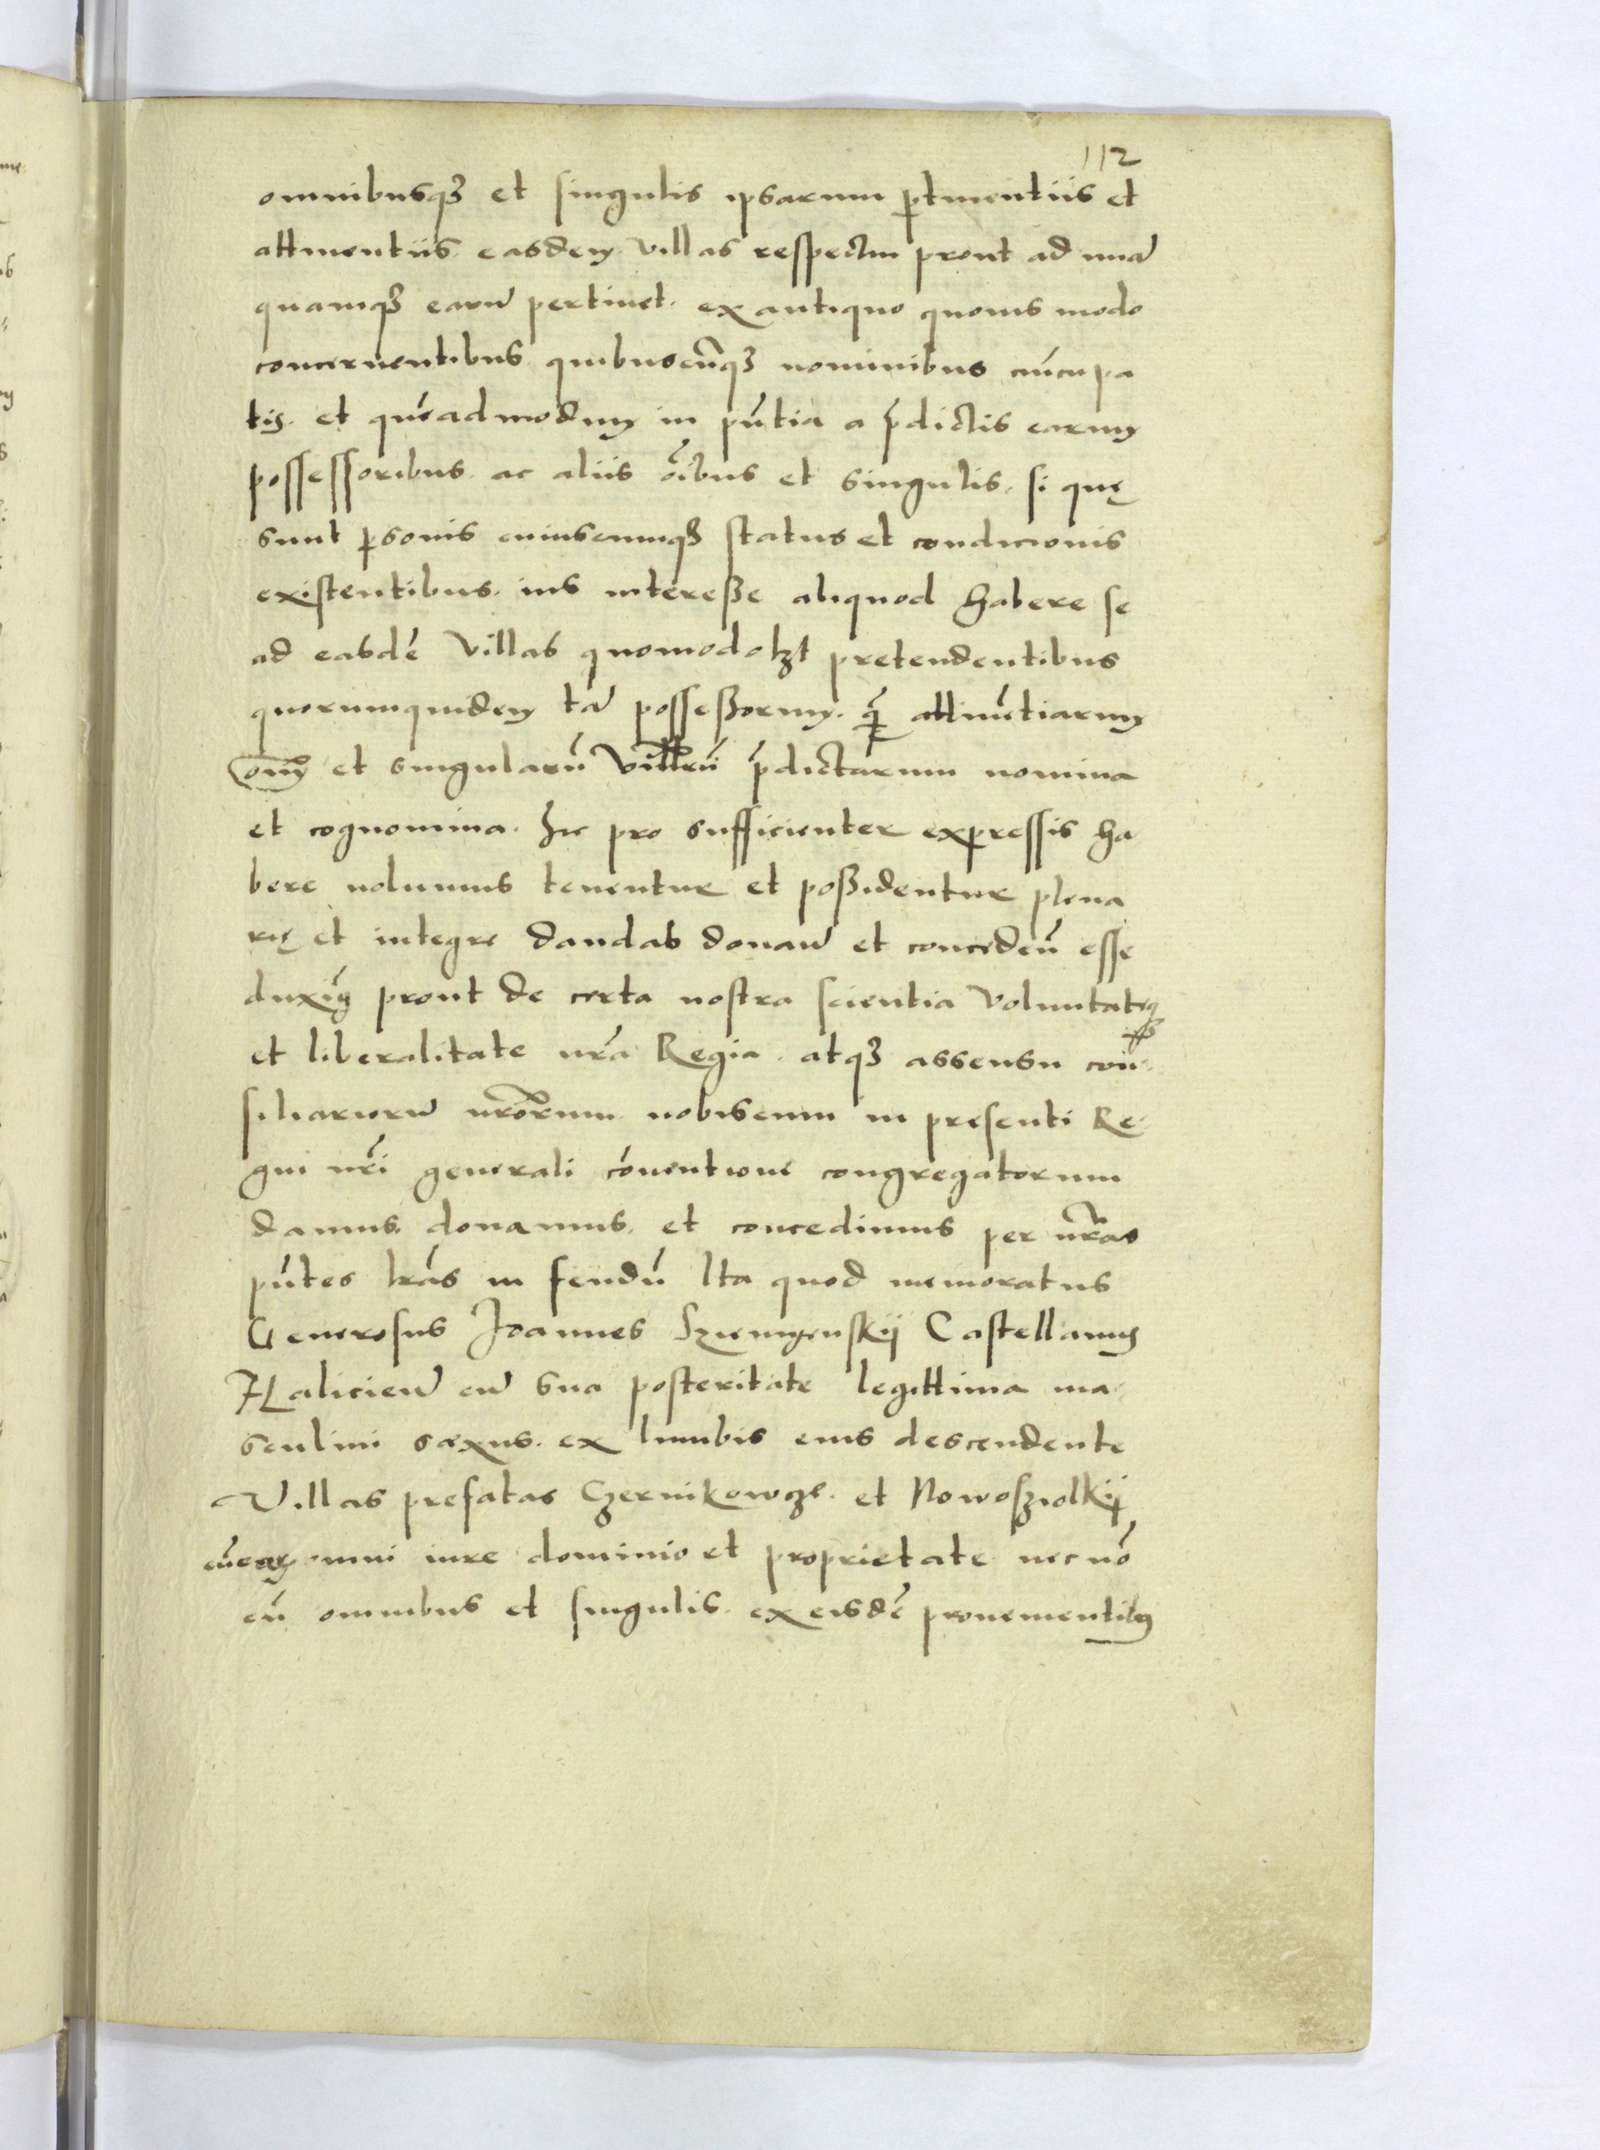 112
omnibusqȝ et singulis ipsarum ꝑtinentiis et
attinentiis easdem villas respectiu prout ad unā
quamqȝ earū pertinet. ex antiquo quovis modo
concernentibus quibuscūqȝ nominibus cūcupa
tis. et quēadmodum in pn̄tia a p̄dictis earum
possessoribus. ac aliis oībus et singulis. si quę
sunt ꝑsonis cuiuscumqȝ status et condicionis
existentibus. ius interesse aliquod habere se
ad easdē villas quomodolȝt pretendentibus
quorumquidem tā possessorum. qȝ attinētiarum
omī et singularū villarū p̄dictarum nomina
et cognomina. hic pro sufficienter expressis ha
bere uolumus tenentur et possidentur plena
rię et integre dandas donan̄ et conceden̄ esse
duxim̄ prout de certa nostra scientia voluntateqȝ
et liberalitate nr̄a Regia. atqȝ assensu con
siliariorū nr̄orum nobiscum in presenti Re
gni nr̄i generali cōuentione congregatorum
damus. donamus. et concedimus per nr̄as
pn̄tes lr̄as in feudū Ita quod memoratus
Generosus Joannes Sziemyenskij Castellanus
Halicien̄ cū sua posteritate legittima ma
sculini sexus. ex lumbis eius descendente
Villas prefatas Czernikowcze. et Nowosziolkij
cū omni iure dominio et proprietate necnō
cū omnibus et singulis. ex eisdē prouenientibus